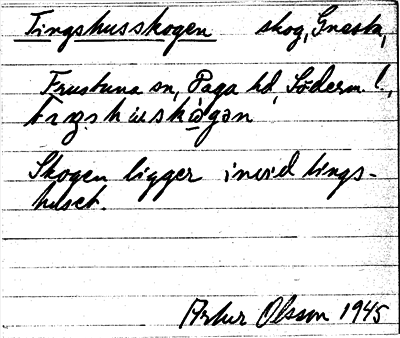 Tingshusskogen skog, Gnesta,
Frustuna sn, Daga hd, Söderm. l.,
Skogen ligger invid tings-
huset.
Artur Olsson 1945